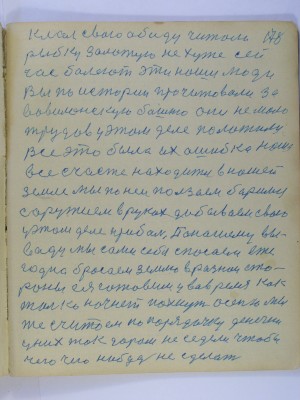 клал свого обиду читали 148
рыбку золотую не хуже сей
час болеют эти наши мозги
Вы по истории прочитовали за
вовилонскую башню они не мало
трудов у этом деле положили
все это была их ошибка наше
все счастя находится в нашей
земле мы по ней ползаем боримся
с оружием в руках добиваем свого
у этом деле прибал, По нашему вы-
ваду мы сами себя спасаем еже
годна бросаем землю в разные сто-
роны сея готовим у вовремя как
только начнет пахнуть осенью мы
же считаем по порядочку денечки
у них так даром не седели чтобы
чего чго нибудь не сделать